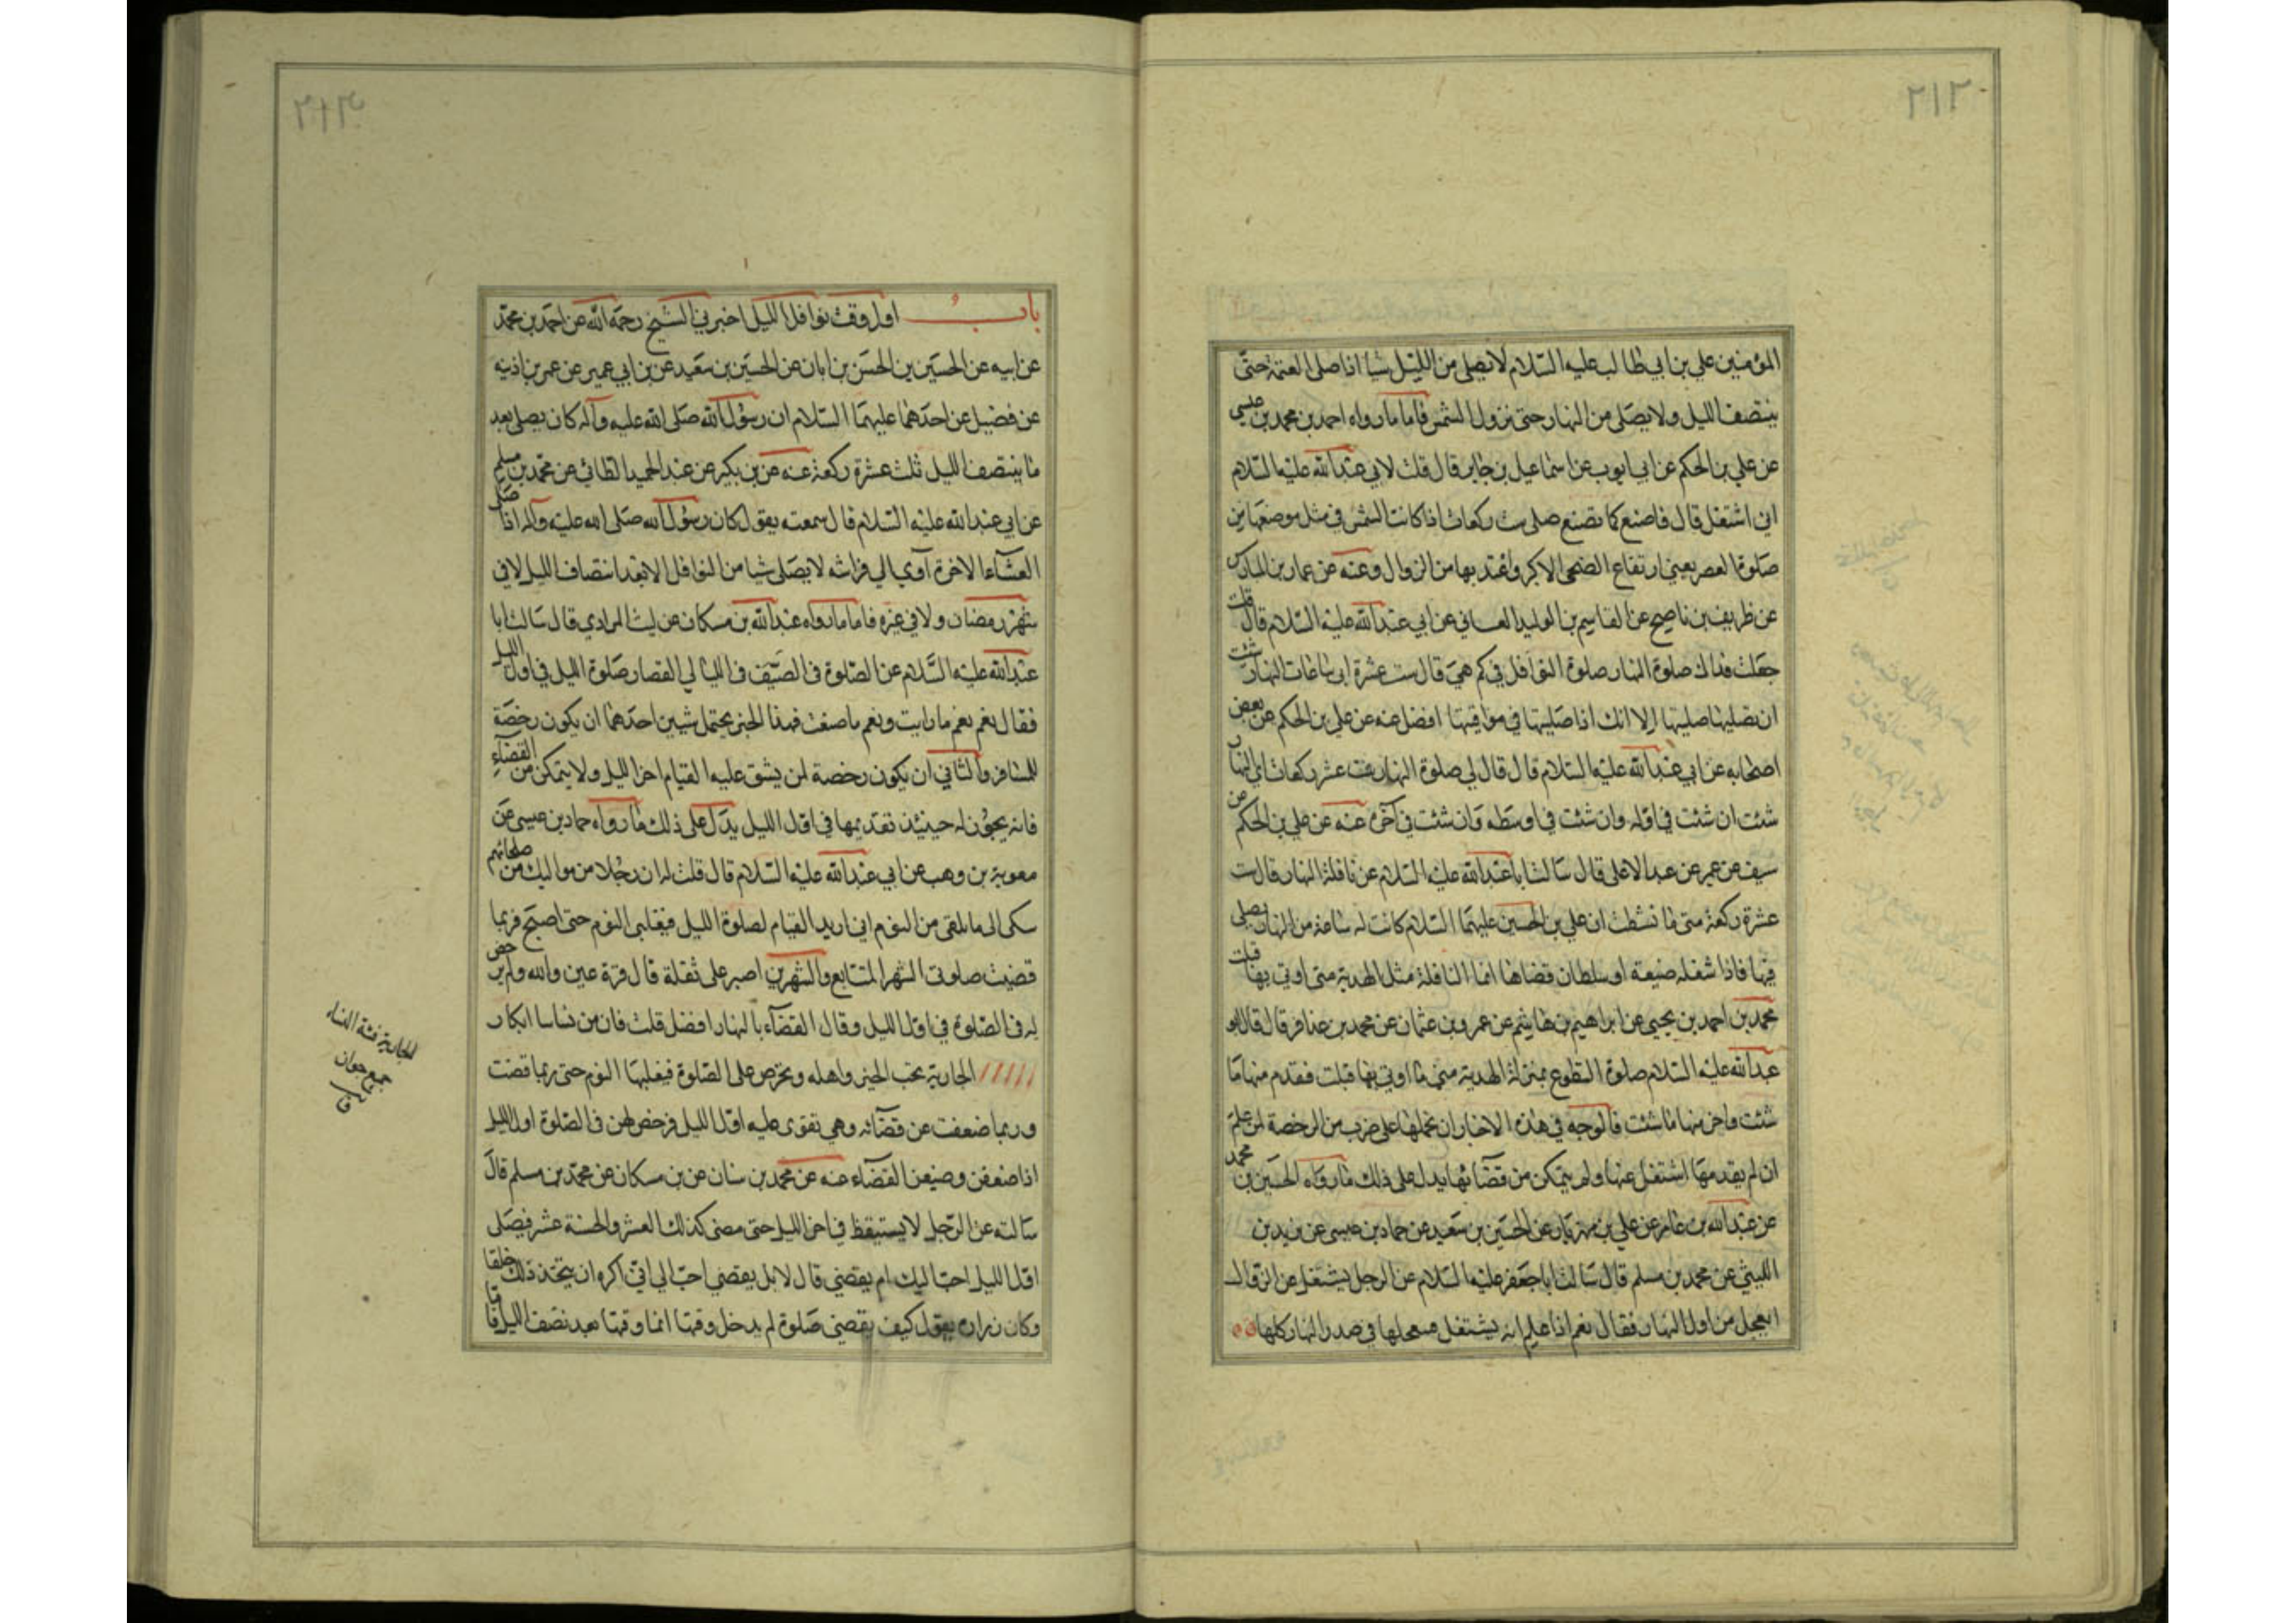 ٢١٢
المؤمنين علي بن ابي طالب عليه السلام لا يصلي من الليل شيا اذا صلى العتمة حتى
ينتصف الليل ولا يصلى من النهار حتى تزول الشمس فاما ما رواه احمد بن محمد بن عيسى
عن علي بن الحكم عن ابي ايوب عن اسماعيل بن جابر قال قلت لابي عبد الله عليه السلام
اني اشتغل قال فاصنع كما تصنع صلى ست ركعات اذا كانت الشمس في مثل موضعها من
صلوة العصر يعني ارتفاع الضحى الاكبر واعتد بها من الزوال وعنه عن عمار بن المبارك
عن ظريف بن ناصح عن القاسم بن الوليد الغساني عن ابي عبد الله عليه السلام قال قلت
جعلت فداك صلوة النهار صلوة النوافل في كم هي قال ست عشرة اي ساعات النهار شئت
ان تصليها صليتها الا انك اذا صليتها في مواقيتها افضل عنه عن علي بن الحكم عن بعض
اصحابه عن ابي عبد الله عليه السلام قال قال لي صلوة النهار ست عشر ركعات اي النهار
شئت ان شئت في اوله وان شئت في اوسطه وان شئت في آخره عنه عن علي بن الحكم عن
سيف عن عمير عن عبد الاعلى قال سالت ابا عبد الله عليه السلام عن نافلة النهار قال ست
عشرة ركعة متى ما نشطت ان علي بن الحسين عليهما السلام كانت له ساعة من النهار يصلي
فيها فاذا شغله ضيعة او سلطان قضاها انما النافلة مثل الهدية متى اوتي بها قبلت
محمد بن احمد بن يحيى عن ابراهيم بن هاشم عن عمرو بن عثمان عن محمد بن عذافر قال قال ابو
عبد الله عليه السلام صلوة التطوع بمنزلة الهدية متى ما اوتي بها قبلت فقدم منها ما
شئت واخر منها ما شئت فالوجه في هذه الاخبار ان نحملها على ضرب من الرخصة لمن علم
ان لم يقدمها اشتغل عنها ولم يتمكن من قضائها يدل على ذلك ما رواه الحسين بن محمد
عن عبد الله بن عامر عن علي بن مهزيار عن الحسين بن سعيد عن حماد بن عيسى عن يزيد بن
الليثي عن محمد بن مسلم قال سالت ابا جعفر عليه السلام عن الرجل يشتغل عن الزوال
ايعجل من اول النهار فقال نعم اذا علم انه يشتغل فيعجلها في صدر النهار كلها
٢١٣
باب اول وقت نوافل الليل اخبرني الشيخ رحمه الله عن احمد بن محمد
عن ابيه عن الحسين بن الحسن بن ابان عن الحسين بن سعيد عن بن ابي عمير عن عمر بن اذينه
عن فضيل عن احدهما عليهما السلام ان رسول الله صلى الله عليه وآله كان يصلي بعد
ما ينتصف الليل ثلث عشرة ركعة عنه عن بن بكير عن عبد الحميد الطائي عن محمد بن مسلم
عن ابي عبد الله عليه السلام قال سمعته يقول كان رسول الله صلى الله عليه وآله اذا صلى
العشآء الاخرة آوى الي فراشه لا يصلى شيا من النوافل الا بعد انتصاف الليل لا في
شهر رمضان ولا في غيره فاما ما رواه عبد الله بن مسكان عن ليث المرادي قال سالت ابا
عبد الله عليه السلام عن الصلوة في الصيف في الليالي القصار صلوة الليل في اول الليل
فقال نعم نعم ما رايت ونعم ما صنعت فهذا الخبر يحتمل شيين احدهما ان يكون رخصة
للمسافر والثاني ان يكون رخصة لمن يشق عليه القيام اخر الليل ولا يتمكن من القضآء
فانه يجوز له حينئذ تقديمها في اول الليل يدل على ذلك ما رواه حماد بن عيسى عن
معوية بن وهب عن ابي عبد الله عليه السلام قال قلت له ان رجلا من مواليك من صلحائهم
شكى الى ما يلقى من النوم اني اريد القيام لصلوة الليل فيغلبني النوم حتى اصبح فربما
قضيت صلوتي الشهر المتتابع والشهرين اصبر على ثقلة قال قرة عين والله ولم يرخص
له في الصلوة في اول الليل وقال القضآء بالنهار افضل قلت فان من نسائنا ابكار
الجارية تحب الخير واهله وتحرص على الصلوة فيغلبها النوم حتى ربما قضت
وربما ضعفت عن قضآئه وهي تقوى عليه اول الليل فرخص لهن في الصلوة اول الليل
اذا ضعفن وضيعن القضآء عنه عن محمد بن سنان عن بن مسكان عن محمد بن مسلم قال
سالته عن الرجل لا يستيقظ في اخر الليل حتى مضى كذلك العشر والخمسة عشر فيصلى
اول الليل احب اليك ام يقضي قال لا بل يقضي احب الي اني اكره ان يتخذ ذلك خلقا
وكان زراره يقول كيف يقضي صلوة لم يدخل وقتها انما وقتها بعد نصف الليل
الجارية فتية النساء
جمع جوار